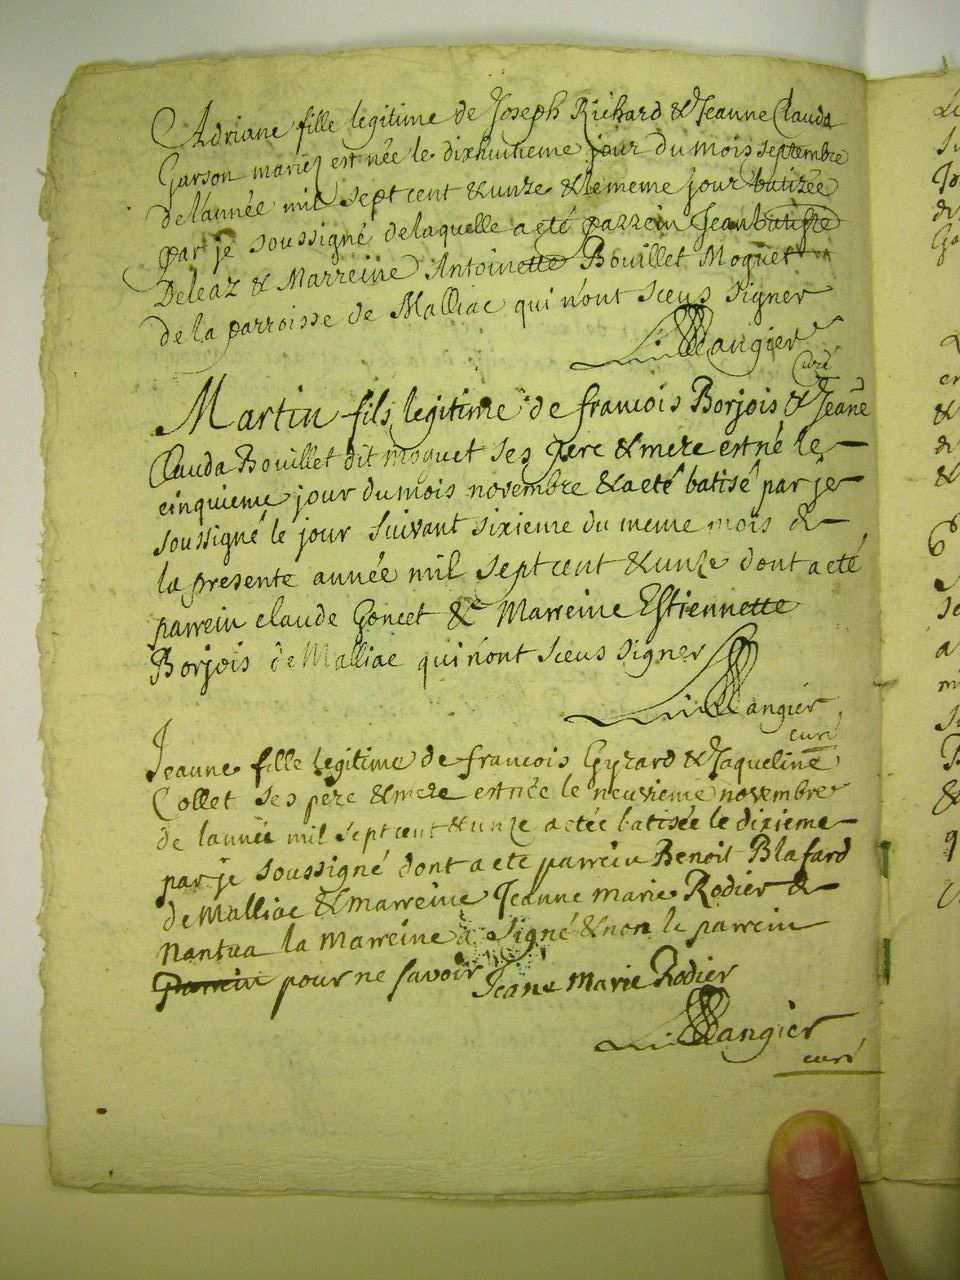 Adriane fille legitime de Joseph Richard & Jeanne Clauda
Garson mariez est née le dixhuitieme jour du mois septembre
de l'année mil sept cent & unze & le meme jour batizée
par je soussigné de laquelle a eté parrein Jean batiste
Deleaz & Marreine Antoinette Bouillet Moquet
de la parroisse de Malliac qui n'ont sceus signer
Mangier
curé
Martin fils legitime de francois Borjois & Jeane
Clauda Bouillet dit moquet ses pere & mere est né le
cinquieme jour du mois novembre & a eté batisé par je
soussigné le jour suivant sixieme du meme mois &
la presente année mil sept cent & unze dont a eté
parrein claude Goncet & Marreine Estiennette
Borjois de Malliac qui n'ont sceus signer
Mangier
curé
Jeanne fille legitime de francois Gyrard & Jaqueline
Collet ses pere & mere est née le neuvieme novembre
de lannée mil sept cent & unze a etée batisée le dixieme
par je soussigné dont a eté parrein Benoit Blafard
de Malliac & marreine Jeanne marie Rodier de
Nantua la marreine a signé & non le parrein
parrein pour ne savoir Jeane Marie Rodier
Mangier
curé